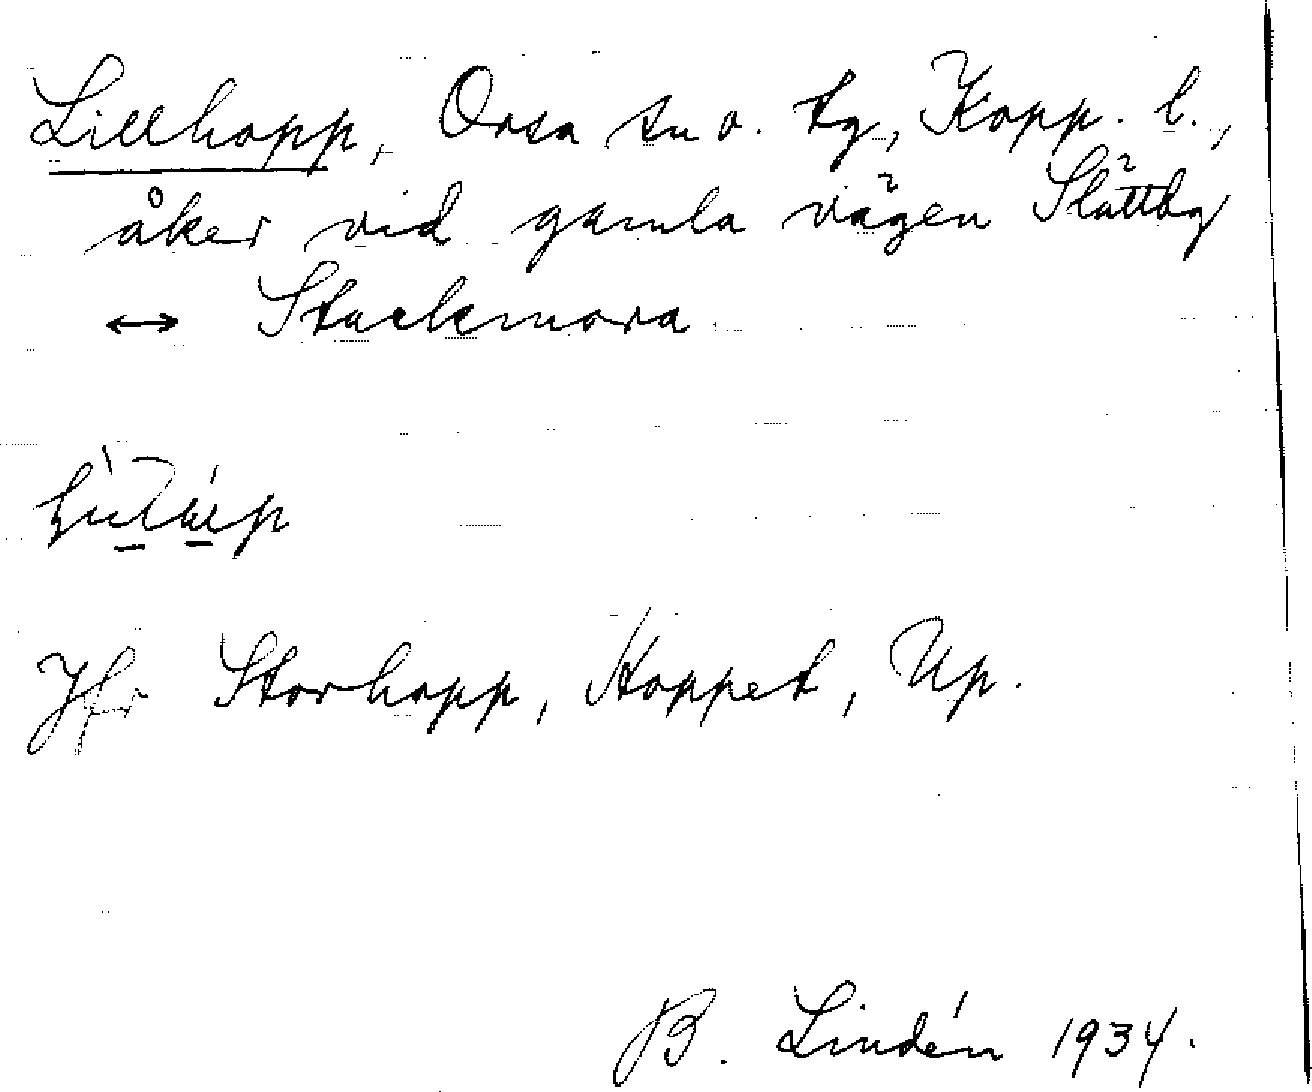 Lillhopp, Orsa sn o. tg, Kopp. l.,
åker vid gamla vägen Slättbg
↔ Stackmora.
Jfr Storhopp, Hoppet, Up.
B. Lindén 1934.